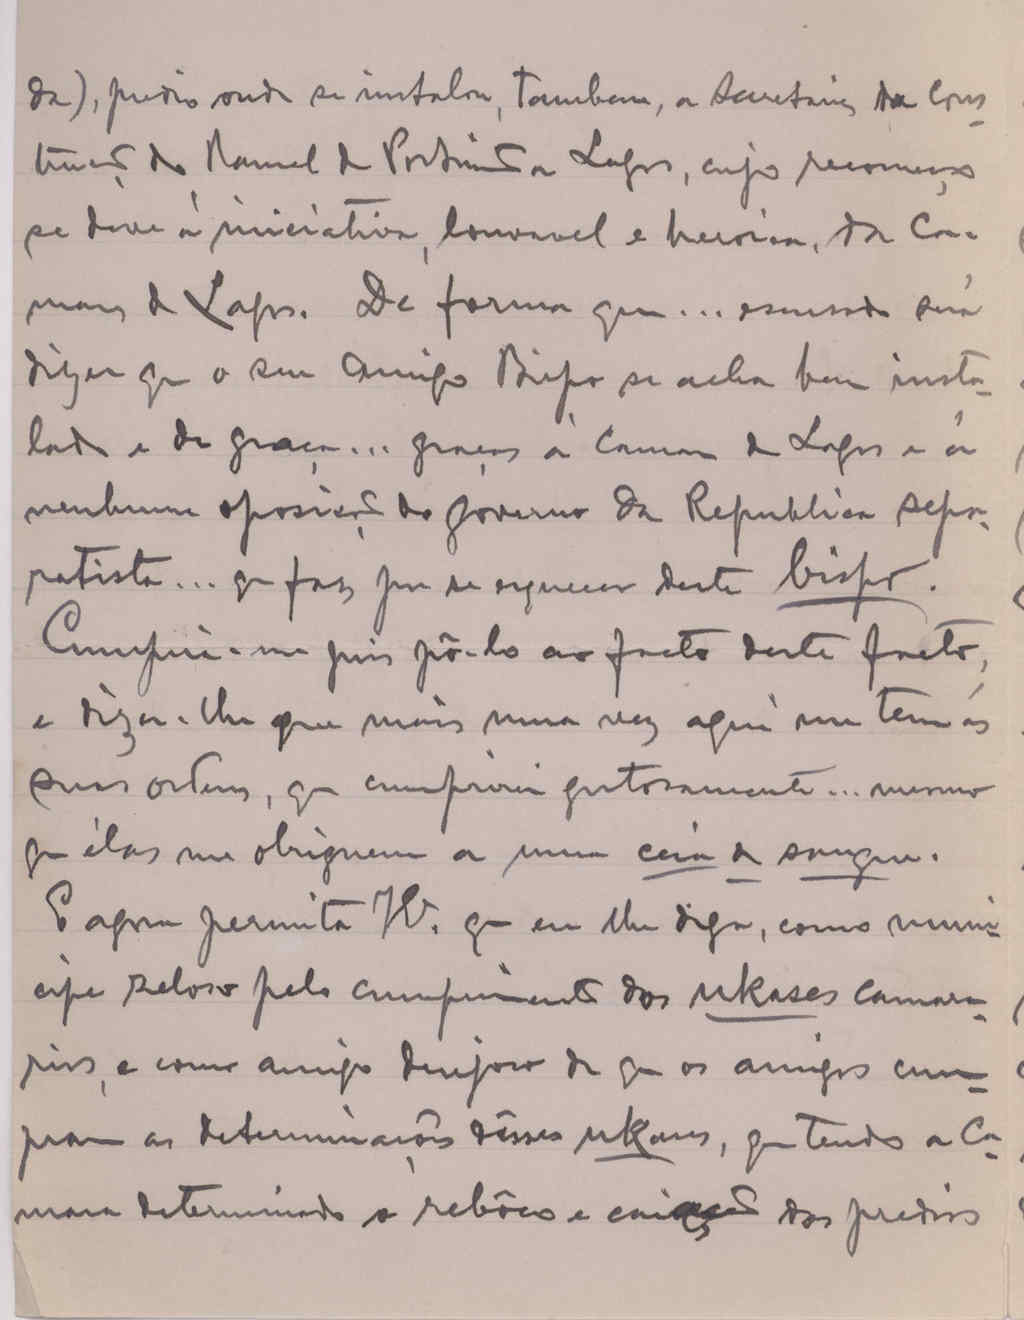 da), predio onde se instalou, tambem, a Secretaria da Cons-
trução do Ramal de Portimão a Lagos, cujo recomeço
se deve á iniciativa, louvavel e heroica, da Ca-
mara de Lagos. De forma que... escusado será
dizer que o seu amigo Bispo se acha bem insta-
lado e de graça... graças á Camara de Lagos e á
nenhuma oposição do governo da Republica sepa-
ratista... que faz por se esquecer deste bispo.
Cumpria-me pois pô-lo ao facto deste facto,
e dizer-lhe que mais uma vez aqui me tem ás
suas ordens, que cumprirei gostosamente... mesmo
que élas me obriguem a uma ceia de sangue.
E agora permita V. que eu lhe diga, como muni-
cipe zeloso pelo cumprimento dos ukases camara-
rios, e como amigo desejoso de que os amigos cum-
pram as determinações dêsses ukases, que tendo a Ca-
mara determinado o rebôco e caiação dos predios